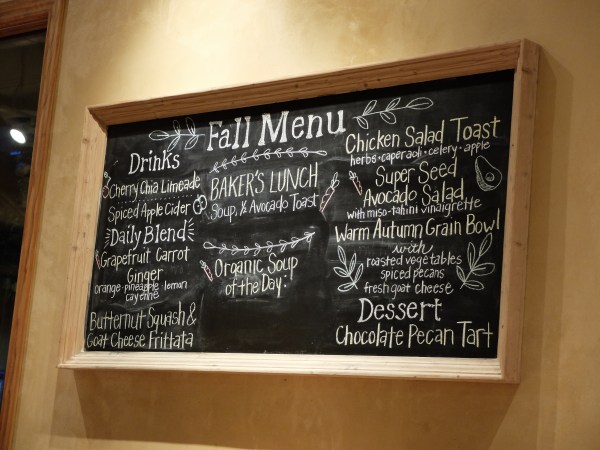 Fall Menu
Drinks
Cherry Chia Limeade
Spiced Apple Cider
Daily Blend
Grapefruit Carrot
Ginger
orange • pineapple • lemon
cayenne
Butternut Squash &
Goat Cheese Frittata
BAKER'S LUNCH
Soup, ½ Avocado Toast
Organic Soup
of the Day!
Chicken Salad Toast
herbs • caperaoli • celery • apple
Super Seed
Avocado Salad
with miso-tahini vinaigrette
Warm Autumn Grain Bowl
with
roasted vegetables
spiced pecans
fresh goat cheese
Dessert
Chocolate Pecan Tart